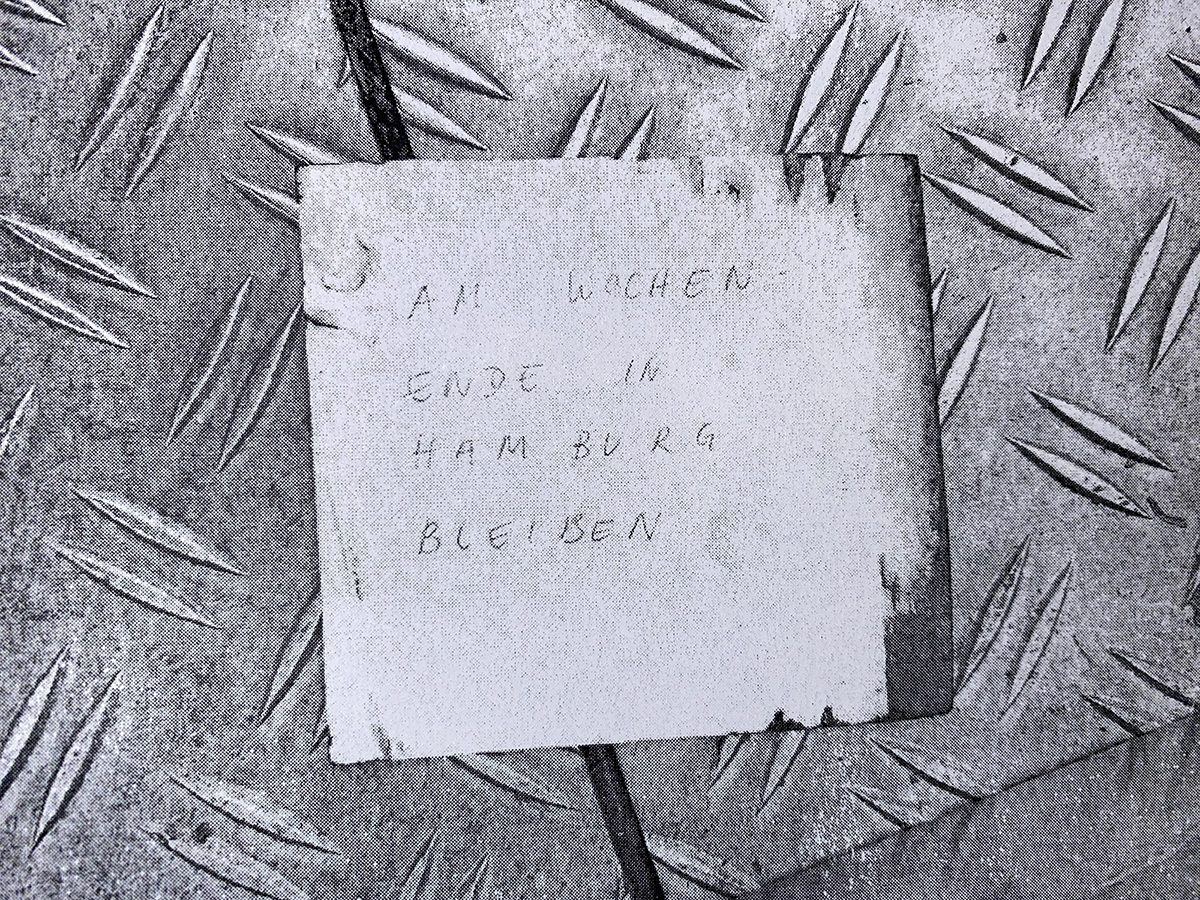 AM WOCHEN-
ENDE IN
HAMBURG
BLEIBEN